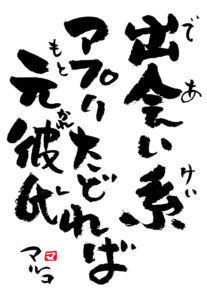 出会い系
アプリたどれば
元彼氏
マルコ
マ
であけい
もとかれし